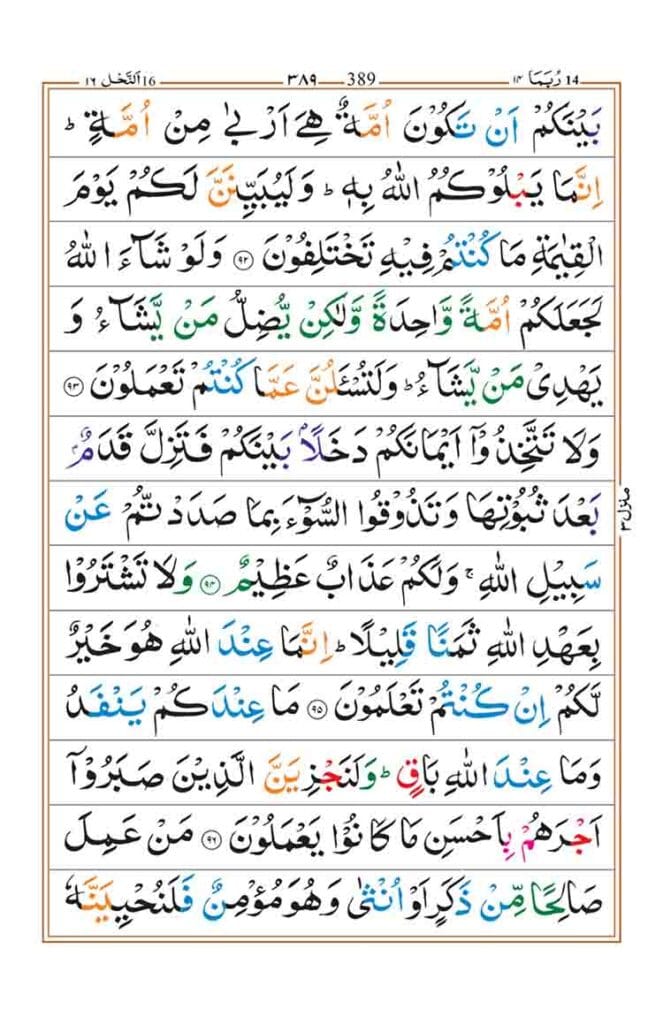 16 اَلنَّحْل ۱۶ ۳۸۹ 389 ۱۴ رُبَمَا 14
بَيْنَكُمْ اَنْ تَكُوْنَ اُمَّةٌ هِيَ اَرْبٰى مِنْ اُمَّةٍ ؕ
اِنَّمَا يَبْلُوْكُمُ اللّٰهُ بِهٖ ؕ وَلَيُبَيِّنَنَّ لَكُمْ يَوْمَ
الْقِيٰمَةِ مَا كُنْتُمْ فِيْهِ تَخْتَلِفُوْنَ ﴿۹۲﴾ وَلَوْ شَآءَ اللّٰهُ
لَجَعَلَكُمْ اُمَّةً وَّاحِدَةً وَّلٰكِنْ يُّضِلُّ مَنْ يَّشَآءُ وَ
يَهْدِىْ مَنْ يَّشَآءُ ؕ وَلَتُسْـَٔلُنَّ عَمَّا كُنْتُمْ تَعْمَلُوْنَ ﴿۹۳﴾
وَلَا تَتَّخِذُوْۤا اَيْمَانَكُمْ دَخَلًاۢ بَيْنَكُمْ فَتَزِلَّ قَدَمٌۢ
بَعْدَ ثُبُوْتِهَا وَتَذُوْقُوا السُّوْٓءَ بِمَا صَدَدْتُّمْ عَنْ
سَبِيْلِ اللّٰهِ ۚ وَلَكُمْ عَذَابٌ عَظِيْمٌ ﴿۹۴﴾ وَلَا تَشْتَرُوْا
بِعَهْدِ اللّٰهِ ثَمَنًا قَلِيْلًا ؕ اِنَّمَا عِنْدَ اللّٰهِ هُوَ خَيْرٌ
لَّكُمْ اِنْ كُنْتُمْ تَعْلَمُوْنَ ﴿۹۵﴾ مَا عِنْدَكُمْ يَنْفَدُ
وَمَا عِنْدَ اللّٰهِ بَاقٍ ؕ وَلَنَجْزِيَنَّ الَّذِيْنَ صَبَرُوْۤا
اَجْرَهُمْ بِاَحْسَنِ مَا كَانُوْا يَعْمَلُوْنَ ﴿۹۶﴾ مَنْ عَمِلَ
صَالِحًا مِّنْ ذَكَرٍ اَوْ اُنْثٰى وَهُوَ مُؤْمِنٌ فَلَنُحْيِيَنَّهٗ
منزل ۳